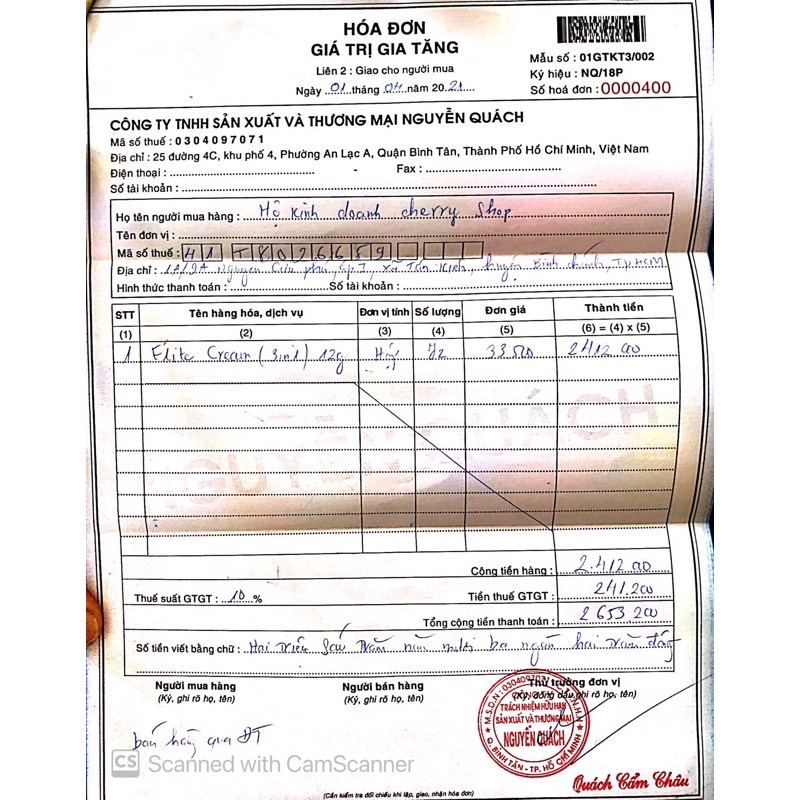 HÓA ĐƠN
GIÁ TRỊ GIA TĂNG
Liên 2 : Giao cho người mua
Ngày 01 tháng 04 năm 2021
Mẫu số : 01GTKT3/002
Ký hiệu : NQ/18P
Số hoá đơn : 0000400
CÔNG TY TNHH SẢN XUẤT VÀ THƯƠNG MẠI NGUYỄN QUÁCH
Mã số thuế : 0304097071
Địa chỉ : 25 đường 4C, khu phố 4, Phường An Lạc A, Quận Bình Tân, Thành Phố Hồ Chí Minh, Việt Nam
Điện thoại : - Fax :
Số tài khoản :
Họ tên người mua hàng : Hộ kinh doanh cherry Shop
Tên đơn vị :
Mã số thuế : 41 T8026659
Địa chỉ : 1A/2A Nguyễn Cửu Phú, ấp 1, xã Tân Kiên, huyện Bình Chánh, TpHCM
Hình thức thanh toán : Số tài khoản :
STT Tên hàng hóa, dịch vụ Đơn vị tính Số lượng Đơn giá Thành tiền
(1) (2) (3) (4) (5) (6) = (4) x (5)
1 Elite Cream (3in1) 12g 72 33500 2412 000
NGUYỄN QUÁCH
Cộng tiền hàng : 2.412 000
Thuế suất GTGT : 10 % Tiền thuế GTGT : 241.200
Tổng cộng tiền thanh toán : 2 653 200
Số tiền viết bằng chữ : Hai triệu Sáu trăm năm mươi ba ngàn hai trăm đồng
Người mua hàng Người bán hàng Thủ trưởng đơn vị
(Ký, ghi rõ họ, tên) (Ký, ghi rõ họ, tên) (Ký, đóng dấu ghi rõ họ, tên)
M.S.D.N : 0304097071
TRÁCH NHIỆM HỮU HẠN
SẢN XUẤT VÀ THƯƠNG MẠI
NGUYỄN QUÁCH
Q. BÌNH TÂN - TP. HỒ CHÍ MINH
bán hàng qua ĐT
CS Scanned with CamScanner
Quách Cẩm Châu
(Cần kiểm tra đối chiếu khi lập, giao, nhận hóa đơn)